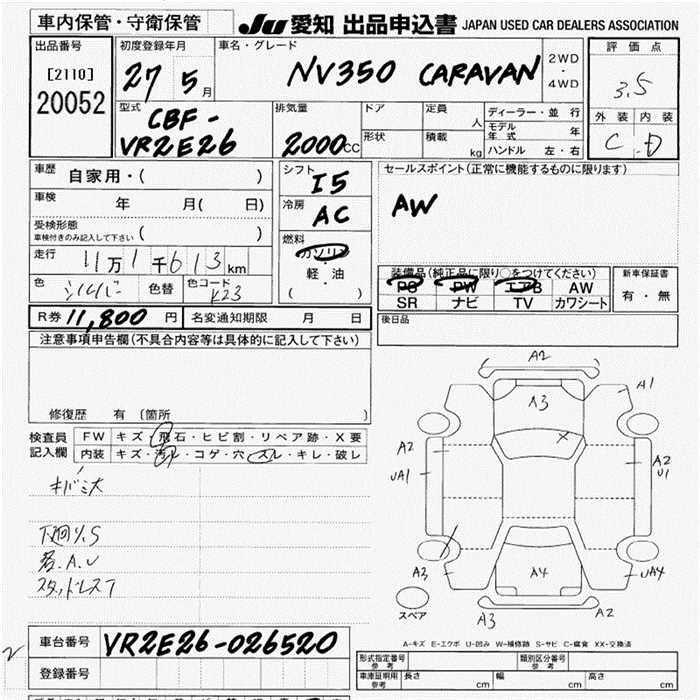 車内保管・守衛保管
JU 愛知 出品申込書 JAPAN USED CAR DEALERS ASSOCIATION
出品番号
[2110]
20052
初度登録年月
27 5月
車名・グレード
NV350 CARAVAN
2WD
・
4WD
評価点
3.5
外装 内装
C D
型式
CBF-
VR2E26
排気量
2000cc
ドア
形状
定員
人
積載
kg
ディーラー・並行
モデル年式 年
ハンドル 左・右
車歴
自家用・( )
車検
年 月( 日)
受検形態
車検付きのみ記入して下さい ( )
走行
11万1千613km
色 シルバー 色替 色コード K23
シフト
I5
冷房
AC
燃料
ガソリン
・
軽・油
( )
セールスポイント(正常に機能するものに限ります)
AW
装備品(純正品に限り○をつけてください)
PS PW エアB AW
SR ナビ TV カワシート
新車保証書
有・無
R券 11,800 円 名変通知期限 月 日
後日品
注意事項申告欄(不具合内容等は具体的に記入して下さい)
修復歴 有 〔箇所 〕
検査員
記入欄
FW キズ・飛石・ヒビ割・リペア跡・X要
内装 キズ・汚レ・コゲ・穴・スレ・キレ・破レ
下廻り.S
A.U
スタッドレス
A2
A1
A3
X
A2
UA1
A2
U1
A3
A4
UA4
A3
A2
スペア
A-キズ E-エクボ U-凹み W-補修跡 S-サビ C-腐食 XX-交換済
車台番号 VR2E26-026520
登録番号
形式指定番号
参考
類別区分番号
参考
車庫証明用
参考
長さ cm 幅 cm 高さ cm
2